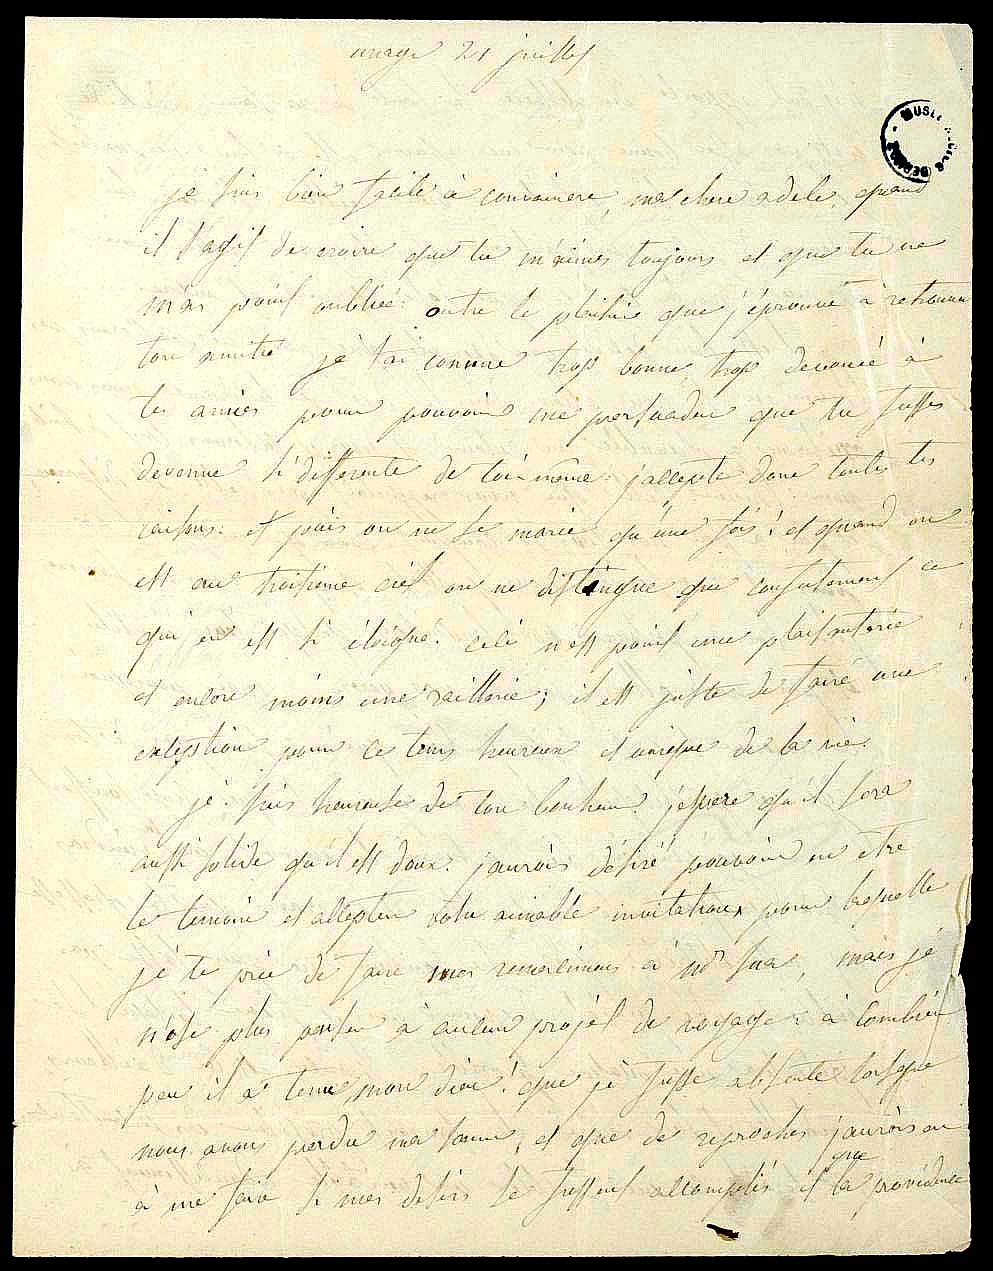 uriage 21 juillet
MUSÉE HECTOR BERLIOZ
je suis bien facile à convaincre, ma chere adele, quand
il s'agit de croire que tu m'aimes toujours et que tu ne
m'as point oubliée. outre le plaisir que j'éprouve à retrouver
ton amitié je t'ai connue trop bonne, trop devouée à
tes amies pour pouvoir me persuader que tu fusses
devenue si differente de toi-même. j'accepte donc toutes tes
raisons: et puis on ne se marie qu'une fois! et quand on
est au troisieme ciel on ne distingue que confusement ce
qui en est si éloigné. ceci n'est point une plaisanterie
et encore moins une raillerie; il est juste de faire une
exception pour ce tems heureux et unique de la vie.
je suis heureuse de ton bonheur j'espere qu'il sera
aussi solide qu'il est doux. j'aurois désiré pouvoir en etre
le temoin et accepter votre aimable invitation, pour laquelle
je te prie de faire mes remercimens à mr Suat, mais je
n'ose plus penser à aucun projet de voyage: à combien
peu il a tenu mon dieu! que je fusse absente lorsque
nous avons perdu ma soeur, et que de reproches j'aurois eu
à me faire si mes desirs se fussent accomplis et que la providence